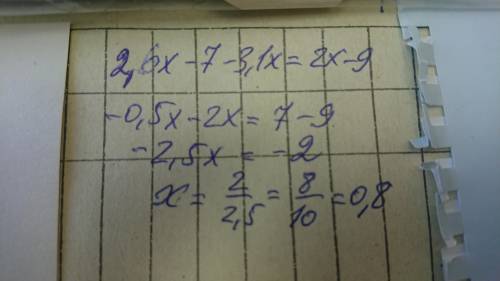 2,6x - 7 - 3,1x = 2x - 9
-0,5x - 2x = 7 - 9
-2,5x = -2
x = 2/2,5 = 8/10 = 0,8